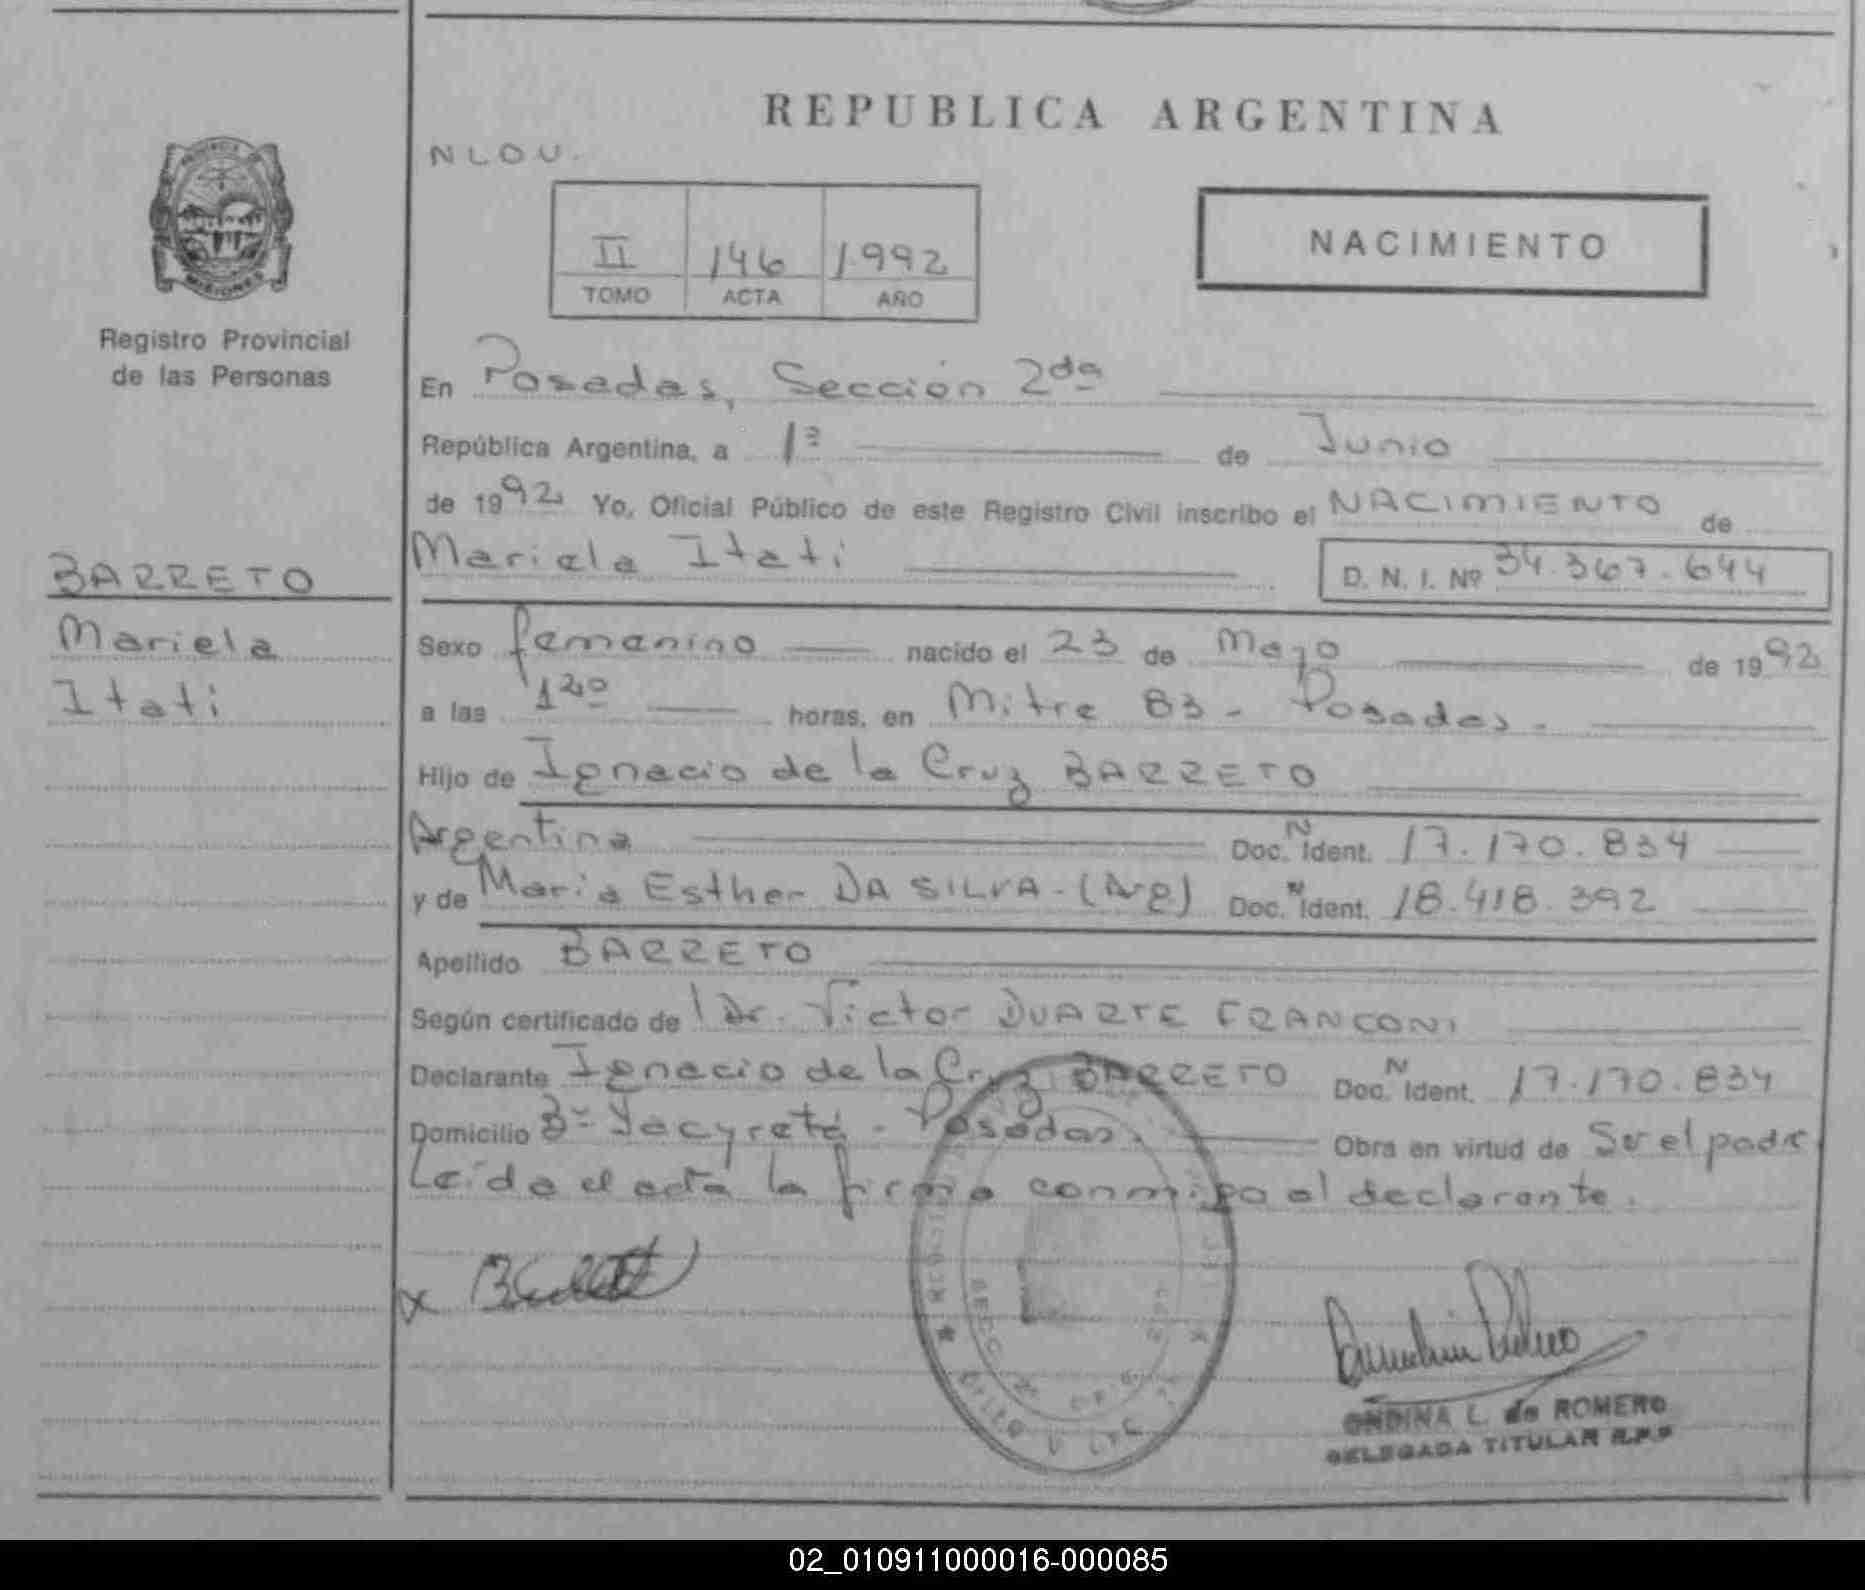 REPUBLICA ARGENTINA
NLOU.
II 146 1.992
TOMO ACTA AÑO
NACIMIENTO
PROVINCIA DE
MISIONES
Registro Provincial
de las Personas
BARRETO
Mariela
Itati
En Posadas, Sección 2da
República Argentina, a 1º de Junio
de 1992 Yo, Oficial Público de este Registro Civil inscribo el NACIMIENTO de
Mariela Itati D. N. I. Nº 34.367.644
Sexo femenino nacido el 23 de Mayo de 1992
a las horas, en Mitre 83 - Posadas -
Hijo de Ignacio de la Cruz BARRETO
Argentina Doc. N Ident. 17.170.834
y de Maria Esther DA SILVA - (Arg) Doc. N Ident. 18.418.392
Apellido BARRETO
Según certificado de Dr. Victor DUARTE FRANCONI
Declarante Ignacio de la Cruz BARRETO Doc. N Ident. 17.170.834
Domicilio Bº Yacyretá - Posadas. Obra en virtud de Ser el padre
Leída el acta la firma conmigo el declarante.
x
ONDINA L. de ROMERO
DELEGADA TITULAR R.P.P
02_010911000016-000085